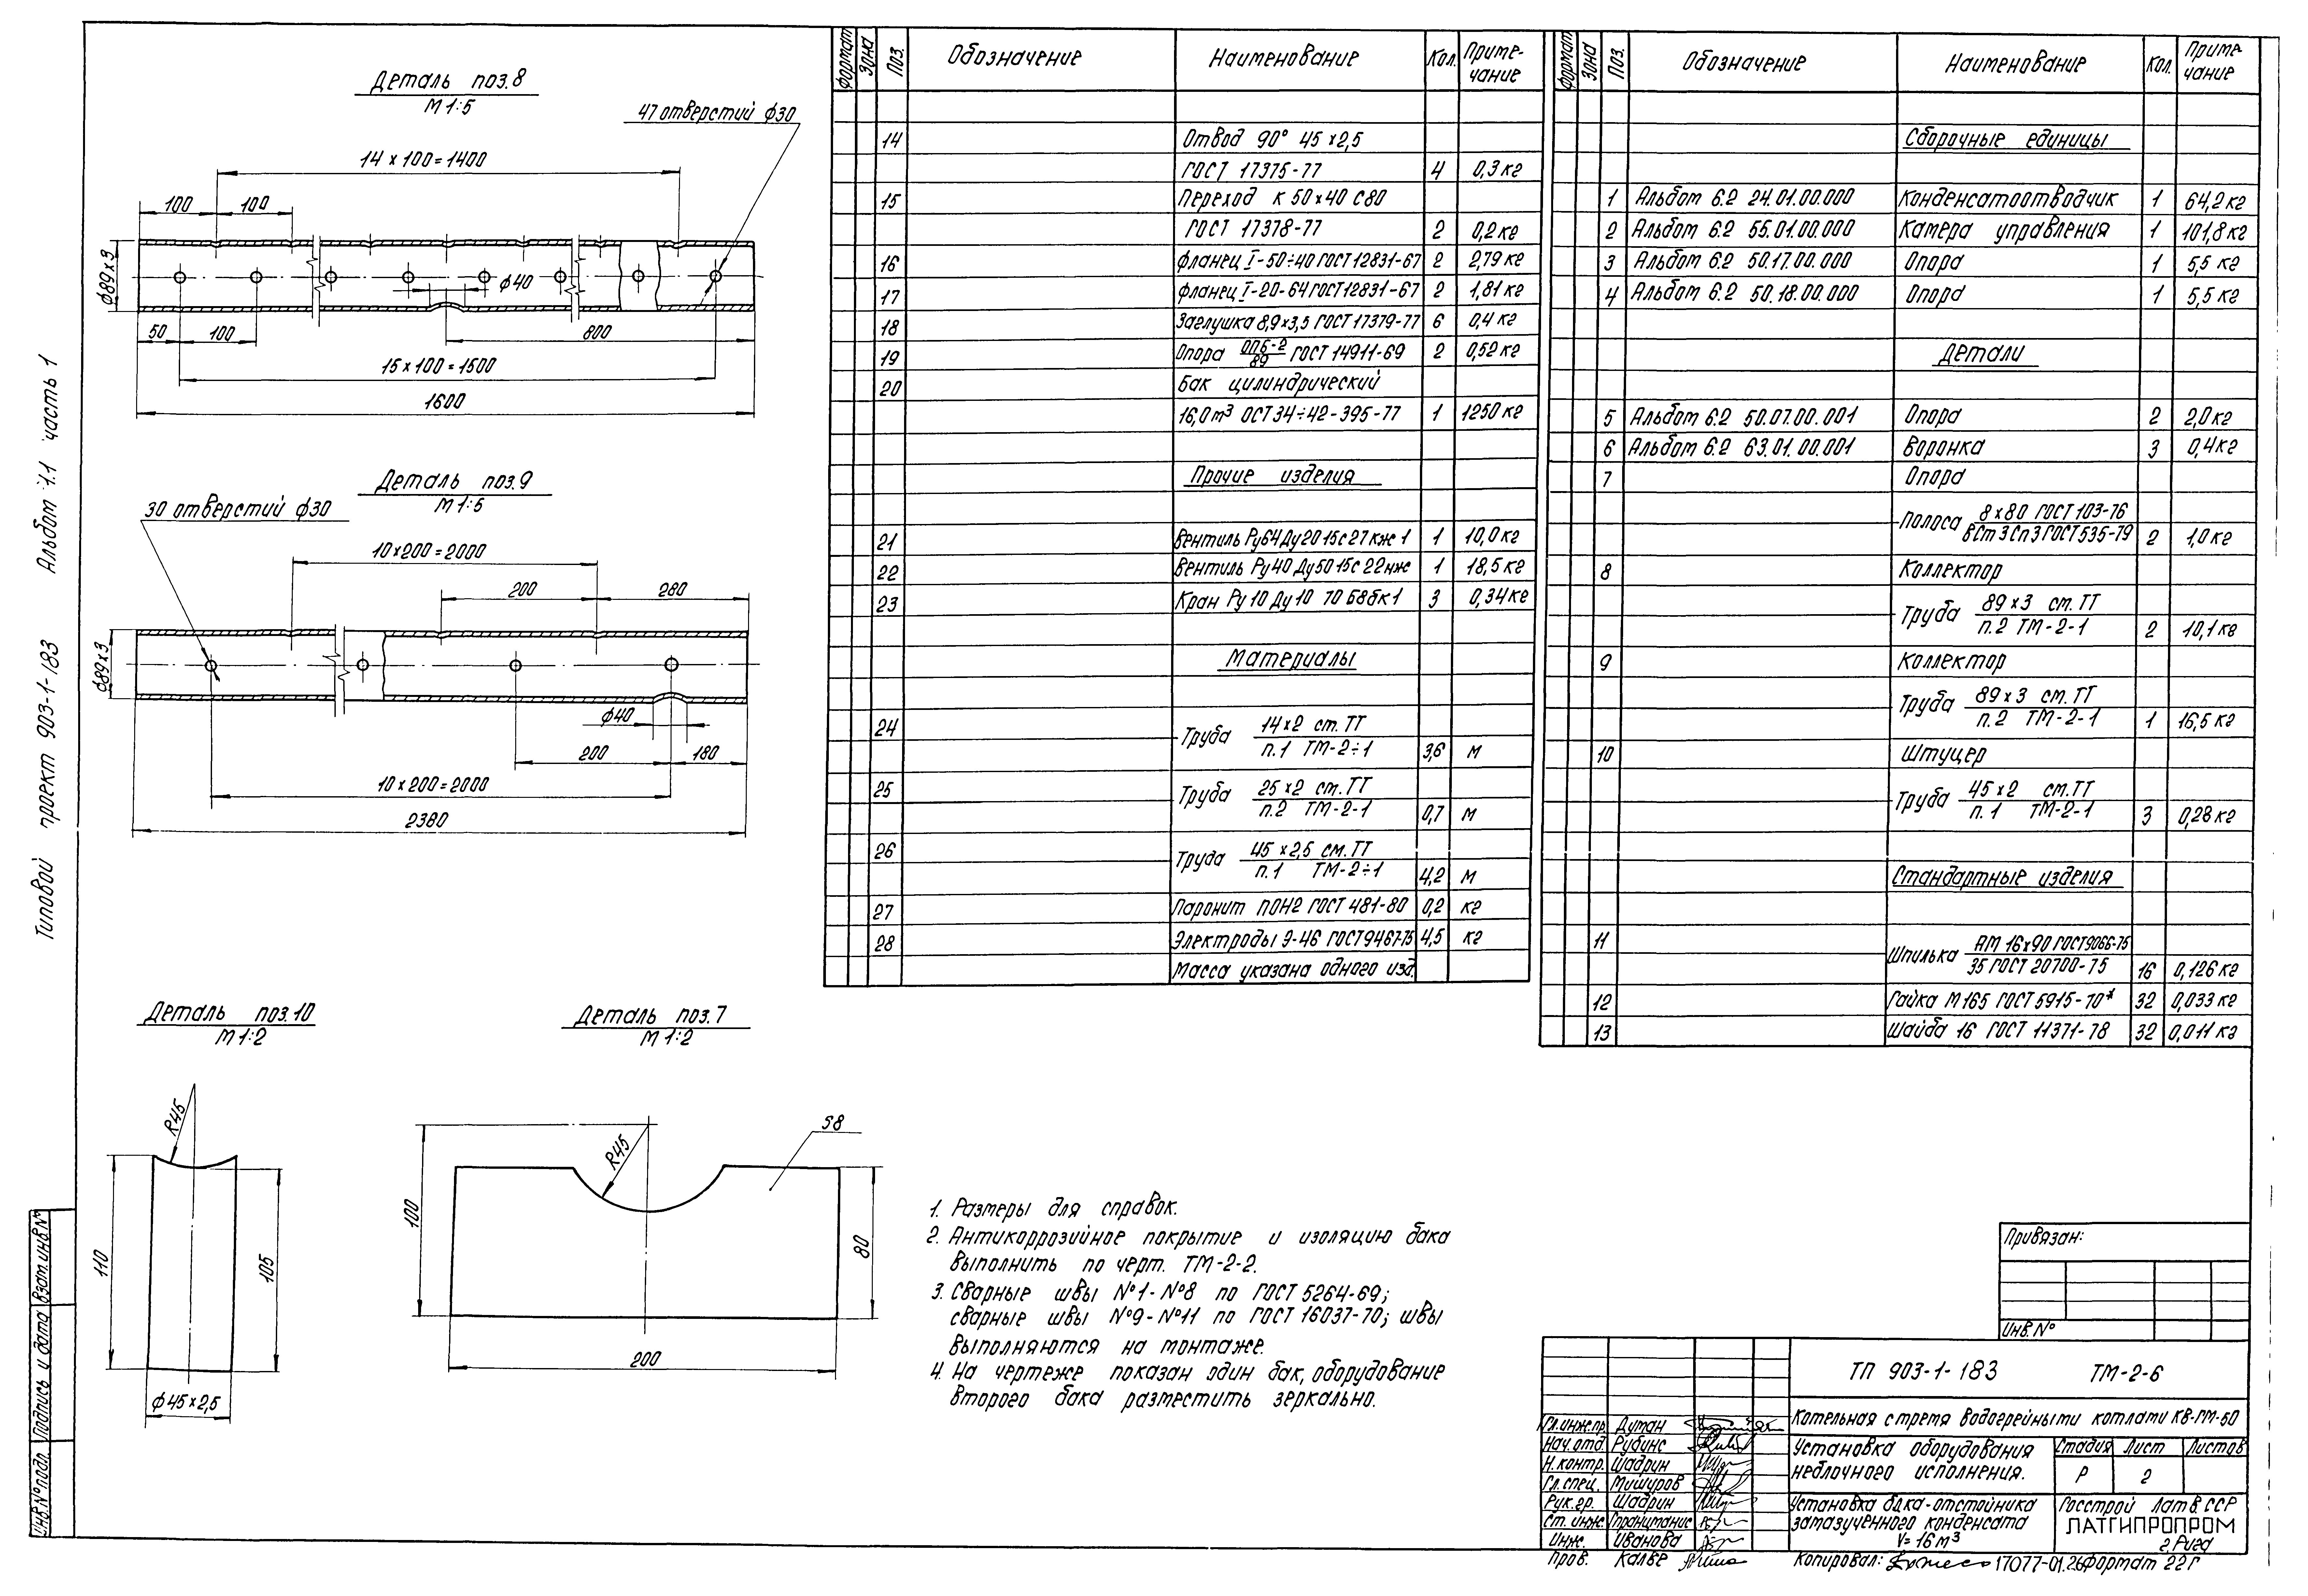 Типовой проект 903-1-183 Альбом 1.1 часть 1
Деталь поз.8
М 1:5
47 отверстий ф30
14 × 100 = 1400
100
100
ф89×3
ф40
50
100
800
15 × 100 = 1500
1600
Деталь поз.9
М 1:5
30 отверстий ф30
10×200=2000
200
280
ф89×3
ф40
200
180
10×200=2000
2380
Деталь поз.10
М 1:2
R45
110
105
ф45×2,5
Деталь поз.7
М 1:2
R45
S8
100
80
200
Формат Зона Поз. Обозначение Наименование Кол. Приме-
чание
14 Отвод 90° 45×2,5
ГОСТ 17375-77 4 0,3 кг
15 Переход К 50×40 С80
ГОСТ 17378-77 2 0,2 кг
16 Фланец I-50÷40 ГОСТ 12831-67 2 2,79 кг
17 Фланец I-20-64 ГОСТ 12831-67 2 1,81 кг
18 Заглушка 8,9×3,5 ГОСТ 17379-77 6 0,4 кг
19 Опора ОПБ-2/89 ГОСТ 14911-69 2 0,52 кг
20 Бак цилиндрический
16,0 m³ ОСТ 34÷42-395-77 1 1250 кг
Прочие изделия
21 Вентиль Ру64 Ду20 15с27нж1 1 10,0 кг
22 Вентиль Ру40 Ду50 15с22нж 1 18,5 кг
23 Кран Ру10 Ду10 10Б8бк1 3 0,34 кг
Материалы
24 Труба 14×2 ст. ТТ
п.1 ТМ-2÷1 3,6 м
25 Труба 25×2 ст. ТТ
п.2 ТМ-2-1 0,7 м
26 Труба 45×2,5 см. ТТ
п.1 ТМ-2÷1 4,2 м
27 Паронит ПОН2 ГОСТ 481-80 0,2 кг
28 Электроды Э-46 ГОСТ 9467-75 4,5 кг
Масса указана одного изд.
Формат Зона Поз. Обозначение Наименование Кол. Приме
чание
Сборочные единицы
1 Альбом 6.2 24.01.00.000 Конденсатоотводчик 1 64,2 кг
2 Альбом 6.2 55.01.00.000 Камера управления 1 101,8 кг
3 Альбом 6.2 50.17.00.000 Опора 1 5,5 кг
4 Альбом 6.2 50.18.00.000 Опора 1 5,5 кг
Детали
5 Альбом 6.2 50.07.00.001 Опора 2 2,0 кг
6 Альбом 6.2 63.01.00.001 Воронка 3 0,4 кг
7 Опора
Полоса 8×80 ГОСТ 103-76
ВСт3Сп3 ГОСТ 535-79 2 1,0 кг
8 Коллектор
Труба 89×3 ст. ТТ
п.2 ТМ-2-1 2 10,1 кг
9 Коллектор
Труба 89×3 ст. ТТ
п.2 ТМ-2-1 1 16,5 кг
10 Штуцер
Труба 45×2 ст. ТТ
п.1 ТМ-2-1 3 0,28 кг
Стандартные изделия
11 Шпилька АМ 16×90 ГОСТ 9066-75
35 ГОСТ 20700-75 16 0,126 кг
12 Гайка М165 ГОСТ 5915-70* 32 0,033 кг
13 Шайба 16 ГОСТ 11371-78 32 0,011 кг
1. Размеры для справок.
2. Антикоррозийное покрытие и изоляцию бака
выполнить по черт. ТМ-2-2.
3. Сварные швы №1-№8 по ГОСТ 5264-69;
сварные швы №9-№11 по ГОСТ 16037-70; швы
выполняются на монтаже.
4. На чертеже показан один бак, оборудование
второго бака разместить зеркально.
Привязан:
Инв.№
ТП 903-1-183 ТМ-2-6
Котельная с тремя водогрейными котлами КВ-ГМ-50
Гл.инж.пр. Думан
Нач.отд. Рубинс
Н.контр. Шадрин
Гл.спец. Мишуров
Рук.гр. Шадрин
Ст.инж.
Инж. Иванова
Пров. Калве
Установка оборудования
неблочного исполнения.
Стадия Лист Листов
Р 2
Установка бака-отстойника
замазученного конденсата
V=16 м³
Госстрой Латв.ССР
ЛАТГИПРОПРОМ
г.Рига
Копировал: 17077-01.26 Формат 22Г
Инв.№ подл. Подпись и дата Взам.инв.№